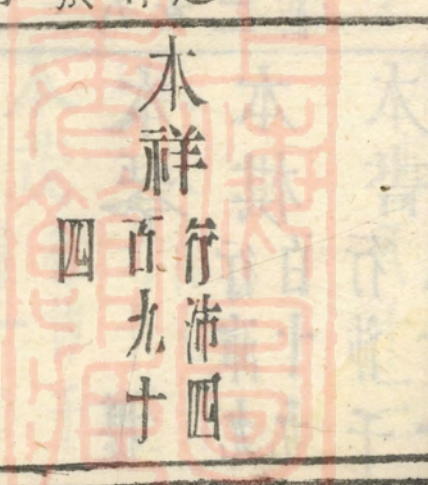 本祥
行沛四
百九十
四